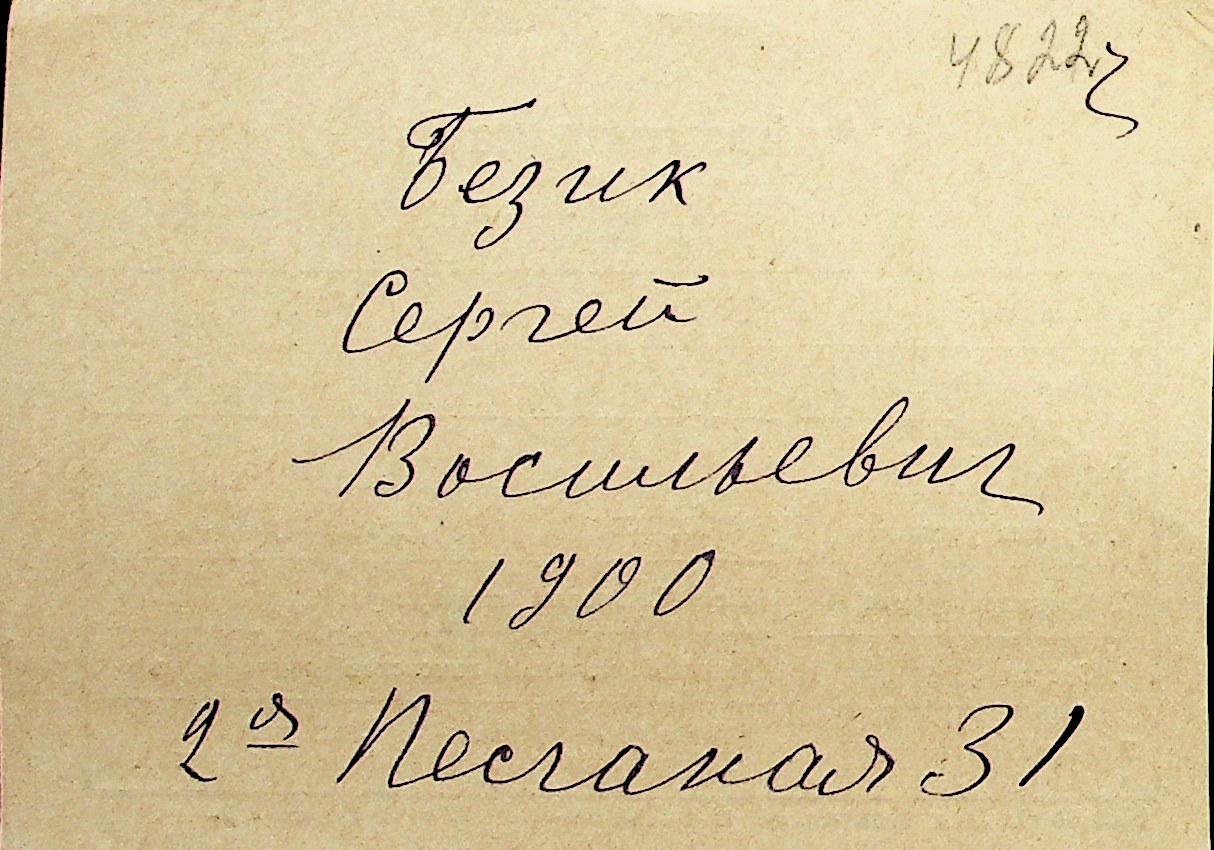 4822
Безик
Сергей
Васильевич
1900
2ая Песчаная 31